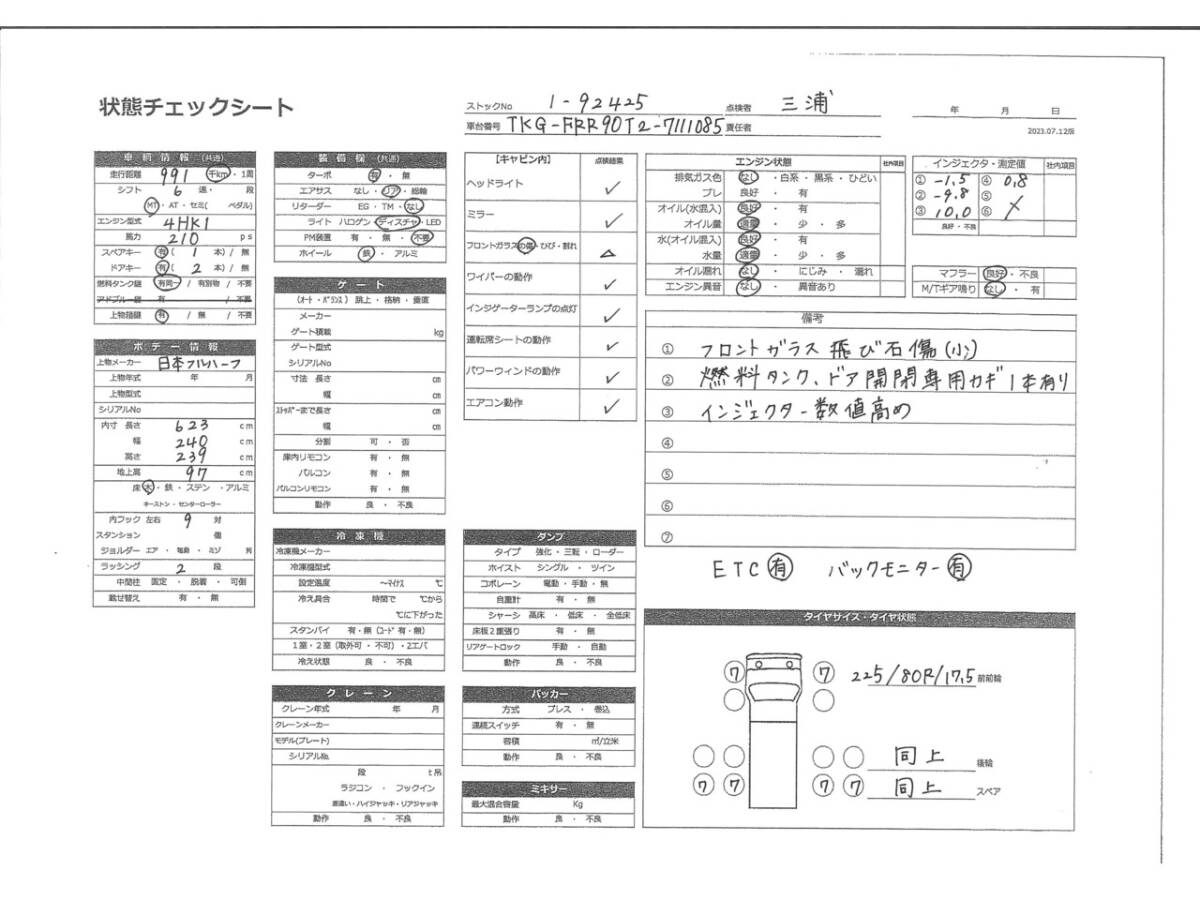 状態チェックシート
ストックNo 1-92425 点検者 三浦
車台番号 TKG-FRR90T2-7111085 責任者
年 月 日
2023.07.12版
車輌情報 (共通)
走行距離 991 千km・1周
シフト 6 速・ 段
MT・AT・セミ( ペダル)
エンジン型式 4HK1
馬力 210 ps
スペアキー 有( 1 本) / 無
ドアキー 有( 2 本) / 無
燃料タンク鍵 有同一 / 有別物 / 不要
アドブルー鍵 有 / 不要
上物鍵 有 / 無 / 不要
ボデー情報
上物メーカー 日本フルハーフ
上物年式 年 月
上物型式
シリアルNo
内寸 長さ 623 cm
幅 240 cm
高さ 239 cm
地上高 97 cm
床 木・鉄・ステン・アルミ
キーストン・センターローラー
内フック 左右 9 対
スタンション 個
ジョルダー エア・電動・ミゾ 列
ラッシング 2 段
中間柱 固定・脱着・可倒
載せ替え 有・無
装備欄 (共通)
ターボ 有・無
エアサス なし・リア・総輪
リターダー EG・TM・なし
ライト ハロゲン・ディスチャ・LED
PM装置 有・無・不要
ホイール 鉄・アルミ
ゲート
(オート・バランス) 跳上・格納・垂直
メーカー
ゲート積載 kg
ゲート型式
シリアルNo
寸法 長さ cm
幅 cm
ストッパーまで長さ cm
幅 cm
分割 可・否
庫内リモコン 有・無
パルコン 有・無
パルコンリモコン 有・無
動作 良・不良
冷凍機
冷凍機メーカー
冷凍機型式
設定温度 ~マイナス ℃
冷え具合 時間で ℃から
℃に下がった
スタンバイ 有・無 (コード 有・無)
1室・2室 (取外可・不可)・2エバ
冷え状態 良・不良
クレーン
クレーン年式 年 月
クレーンメーカー
モデル(プレート)
シリアル№
段 t吊
ラジコン・フックイン
差違い・ハイジャッキ・リアジャッキ
動作 良・不良
【キャビン内】 点検結果
ヘッドライト ✓
ミラー ✓
フロントガラスの傷・ひび・割れ △
ワイパーの動作 ✓
インジゲーターランプの点灯 ✓
運転席シートの動作 ✓
パワーウィンドの動作 ✓
エアコン動作 ✓
ダンプ
タイプ 強化・三転・ローダー
ホイスト シングル・ツイン
コボレーン 電動・手動・無
自重計 有・無
シャーシ 高床・低床・全低床
床板2重張り 有・無
リアゲートロック 手動・自動
動作 良・不良
パッカー
方式 プレス・巻込
連続スイッチ 有・無
容積 ㎥/立米
動作 良・不良
ミキサー
最大混合容量 Kg
動作 良・不良
エンジン状態 社内項目
排気ガス色 なし・白系・黒系・ひどい
ブレ 良好・有
オイル(水混入) 良好・有
オイル量 適量・少・多
水(オイル混入) 良好・有
水量 適量・少・多
オイル漏れ なし・にじみ・漏れ
エンジン異音 なし・異音あり
インジェクタ・測定値 社内項目
① -1.5 ④ 0.8
② -9.8 ⑤
③ 10.0 ⑥
良好・不良
マフラー 良好・不良
M/Tギア鳴り なし・有
備考
① フロントガラス飛び石傷(小)
② 燃料タンク、ドア開閉専用カギ1本有り
③ インジェクター数値高め
④
⑤
⑥
⑦
ETC 有 バックモニター 有
タイヤサイズ・タイヤ状態
7 7 225/80R/17.5 前前輪
同上 後輪
7 7 7 7 同上 スペア